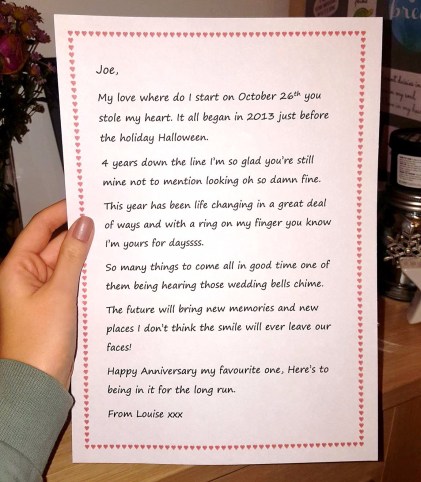 Joe,
My love where do I start on October 26th you
stole my heart. It all began in 2013 just before
the holiday Halloween.
4 years down the line I'm so glad you're still
mine not to mention looking oh so damn fine.
This year has been life changing in a great deal
of ways and with a ring on my finger you know
I'm yours for dayssss.
So many things to come all in good time one of
them being hearing those wedding bells chime.
The future will bring new memories and new
places I don't think the smile will ever leave our
faces!
Happy Anniversary my favourite one, Here's to
being in it for the long run.
From Louise xxx